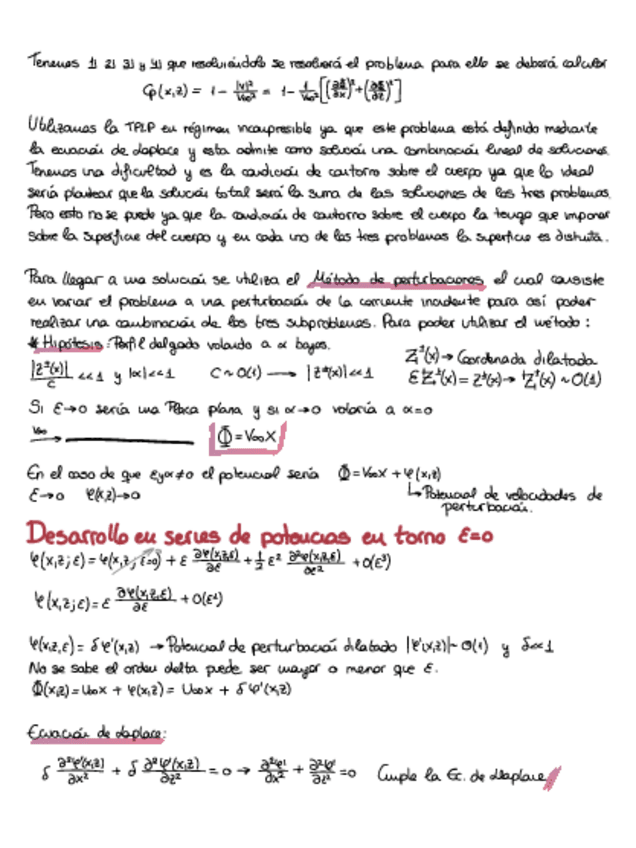 Tenemos 1) 2) 3) y 4) que resolviéndolo se resolverá el problema para ello se deberá calcular
Cp(x,z) = 1 - |V|²/V∞² = 1 - 1/V∞² [(∂Φ/∂x)² + (∂Φ/∂z)²]
Utilizamos la TPLP en régimen incompresible ya que este problema está definido mediante
la ecuación de Laplace y esta admite como solución una combinación lineal de soluciones.
Tenemos una dificultad y es la condición de contorno sobre el cuerpo ya que lo ideal
sería plantear que la solución total será la suma de las soluciones de los tres problemas.
Pero esto no se puede ya que la condición de contorno sobre el cuerpo la tengo que imponer
sobre la superficie del cuerpo y en cada uno de los tres problemas la superficie es distinta.
Para llegar a una solución se utiliza el Método de perturbaciones el cual consiste
en variar el problema a una perturbación de la corriente incidente para así poder
realizar una combinación de los tres subproblemas. Para poder utilizar el método:
* Hipótesis: Perfil delgado volando a α bajos.
|Z±(x)|/C <<1 y |α|<<1 C~O(1) → |Z±(x)|<<1
Z̃±(x) → Coordenada dilatada
εZ̃±(x) = Z±(x) → Z̃±(x) ~ O(1)
Si ε→0 sería una Placa plana y si α→0 volaría a α=0
V∞ Φ = V∞X
En el caso de que ε y α≠0 el potencial sería Φ = V∞X + φ(x,z)
ε→0 φ(x,z)→0 ↳ Potencial de velocidades de
perturbación.
Desarrollo en series de potencias en torno ε=0
φ(x,z;ε) = φ(x,z;ε=0) + ε ∂φ(x,z,ε)/∂ε + 1/2 ε² ∂²φ(x,z,ε)/∂ε² + O(ε³)
φ(x,z;ε) = ε ∂φ(x,z,ε)/∂ε + O(ε²)
φ(x,z,ε) = δφ'(x,z) → Potencial de perturbación dilatado |φ'(x,z)| ~ O(1) y δ<<1
No se sabe el orden delta puede ser mayor o menor que ε.
Φ(x,z) = U∞x + φ(x,z) = U∞x + δφ'(x,z)
Ecuación de Laplace:
δ ∂²φ'(x,z)/∂x² + δ ∂²φ'(x,z)/∂z² = 0 → ∂²φ'/∂x² + ∂²φ'/∂z² = 0 Cumple la Ec. de Laplace